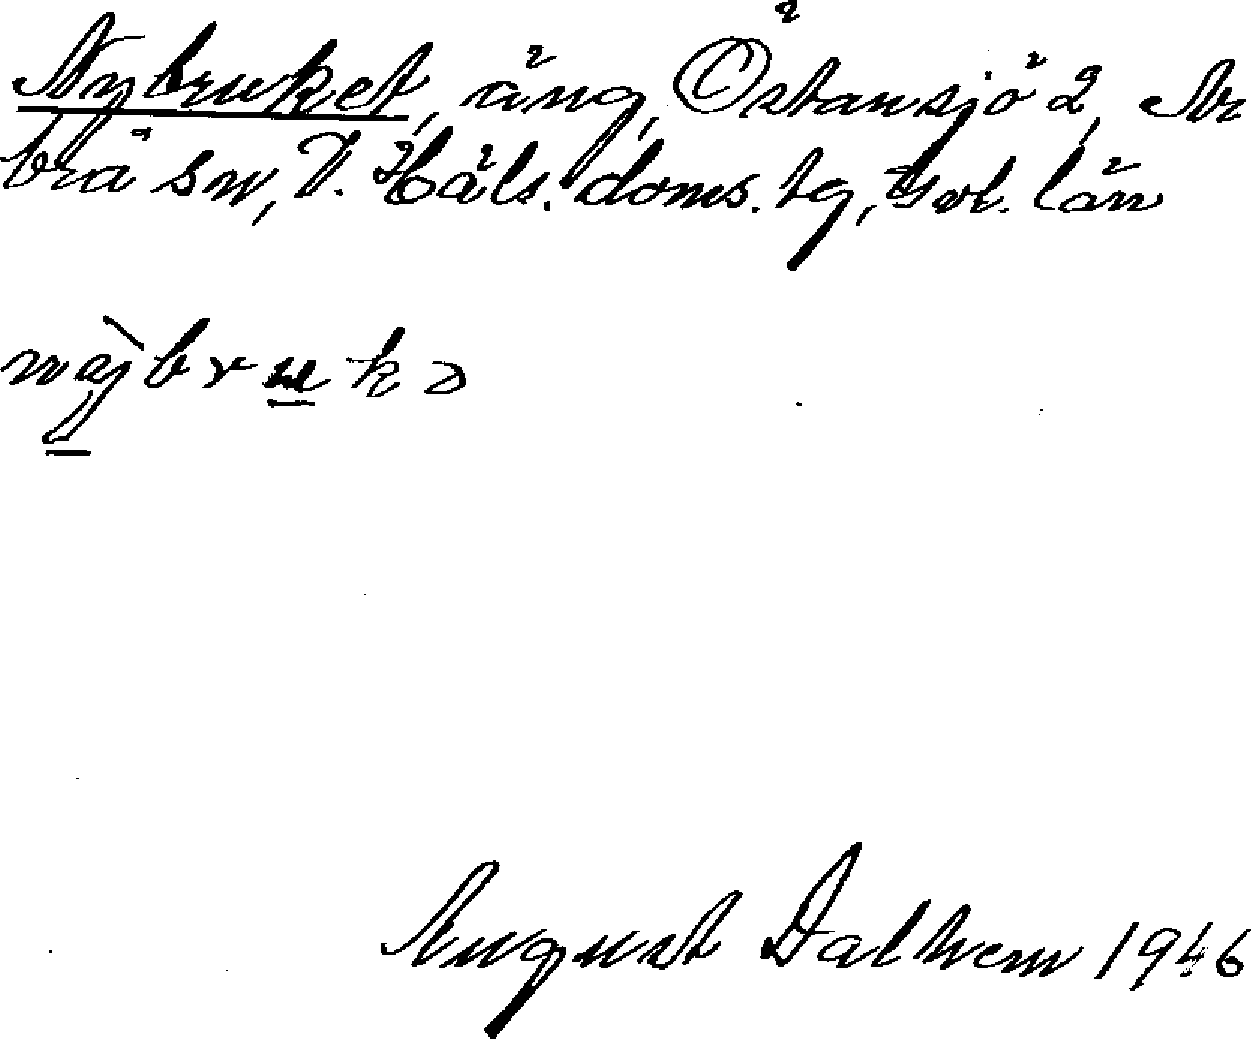 Nybruket, äng, Östansjö 2, Ar
brå sn, V. Häls. doms. tg, Gvl. län
nỳjbrukə
August Dalhem 1946